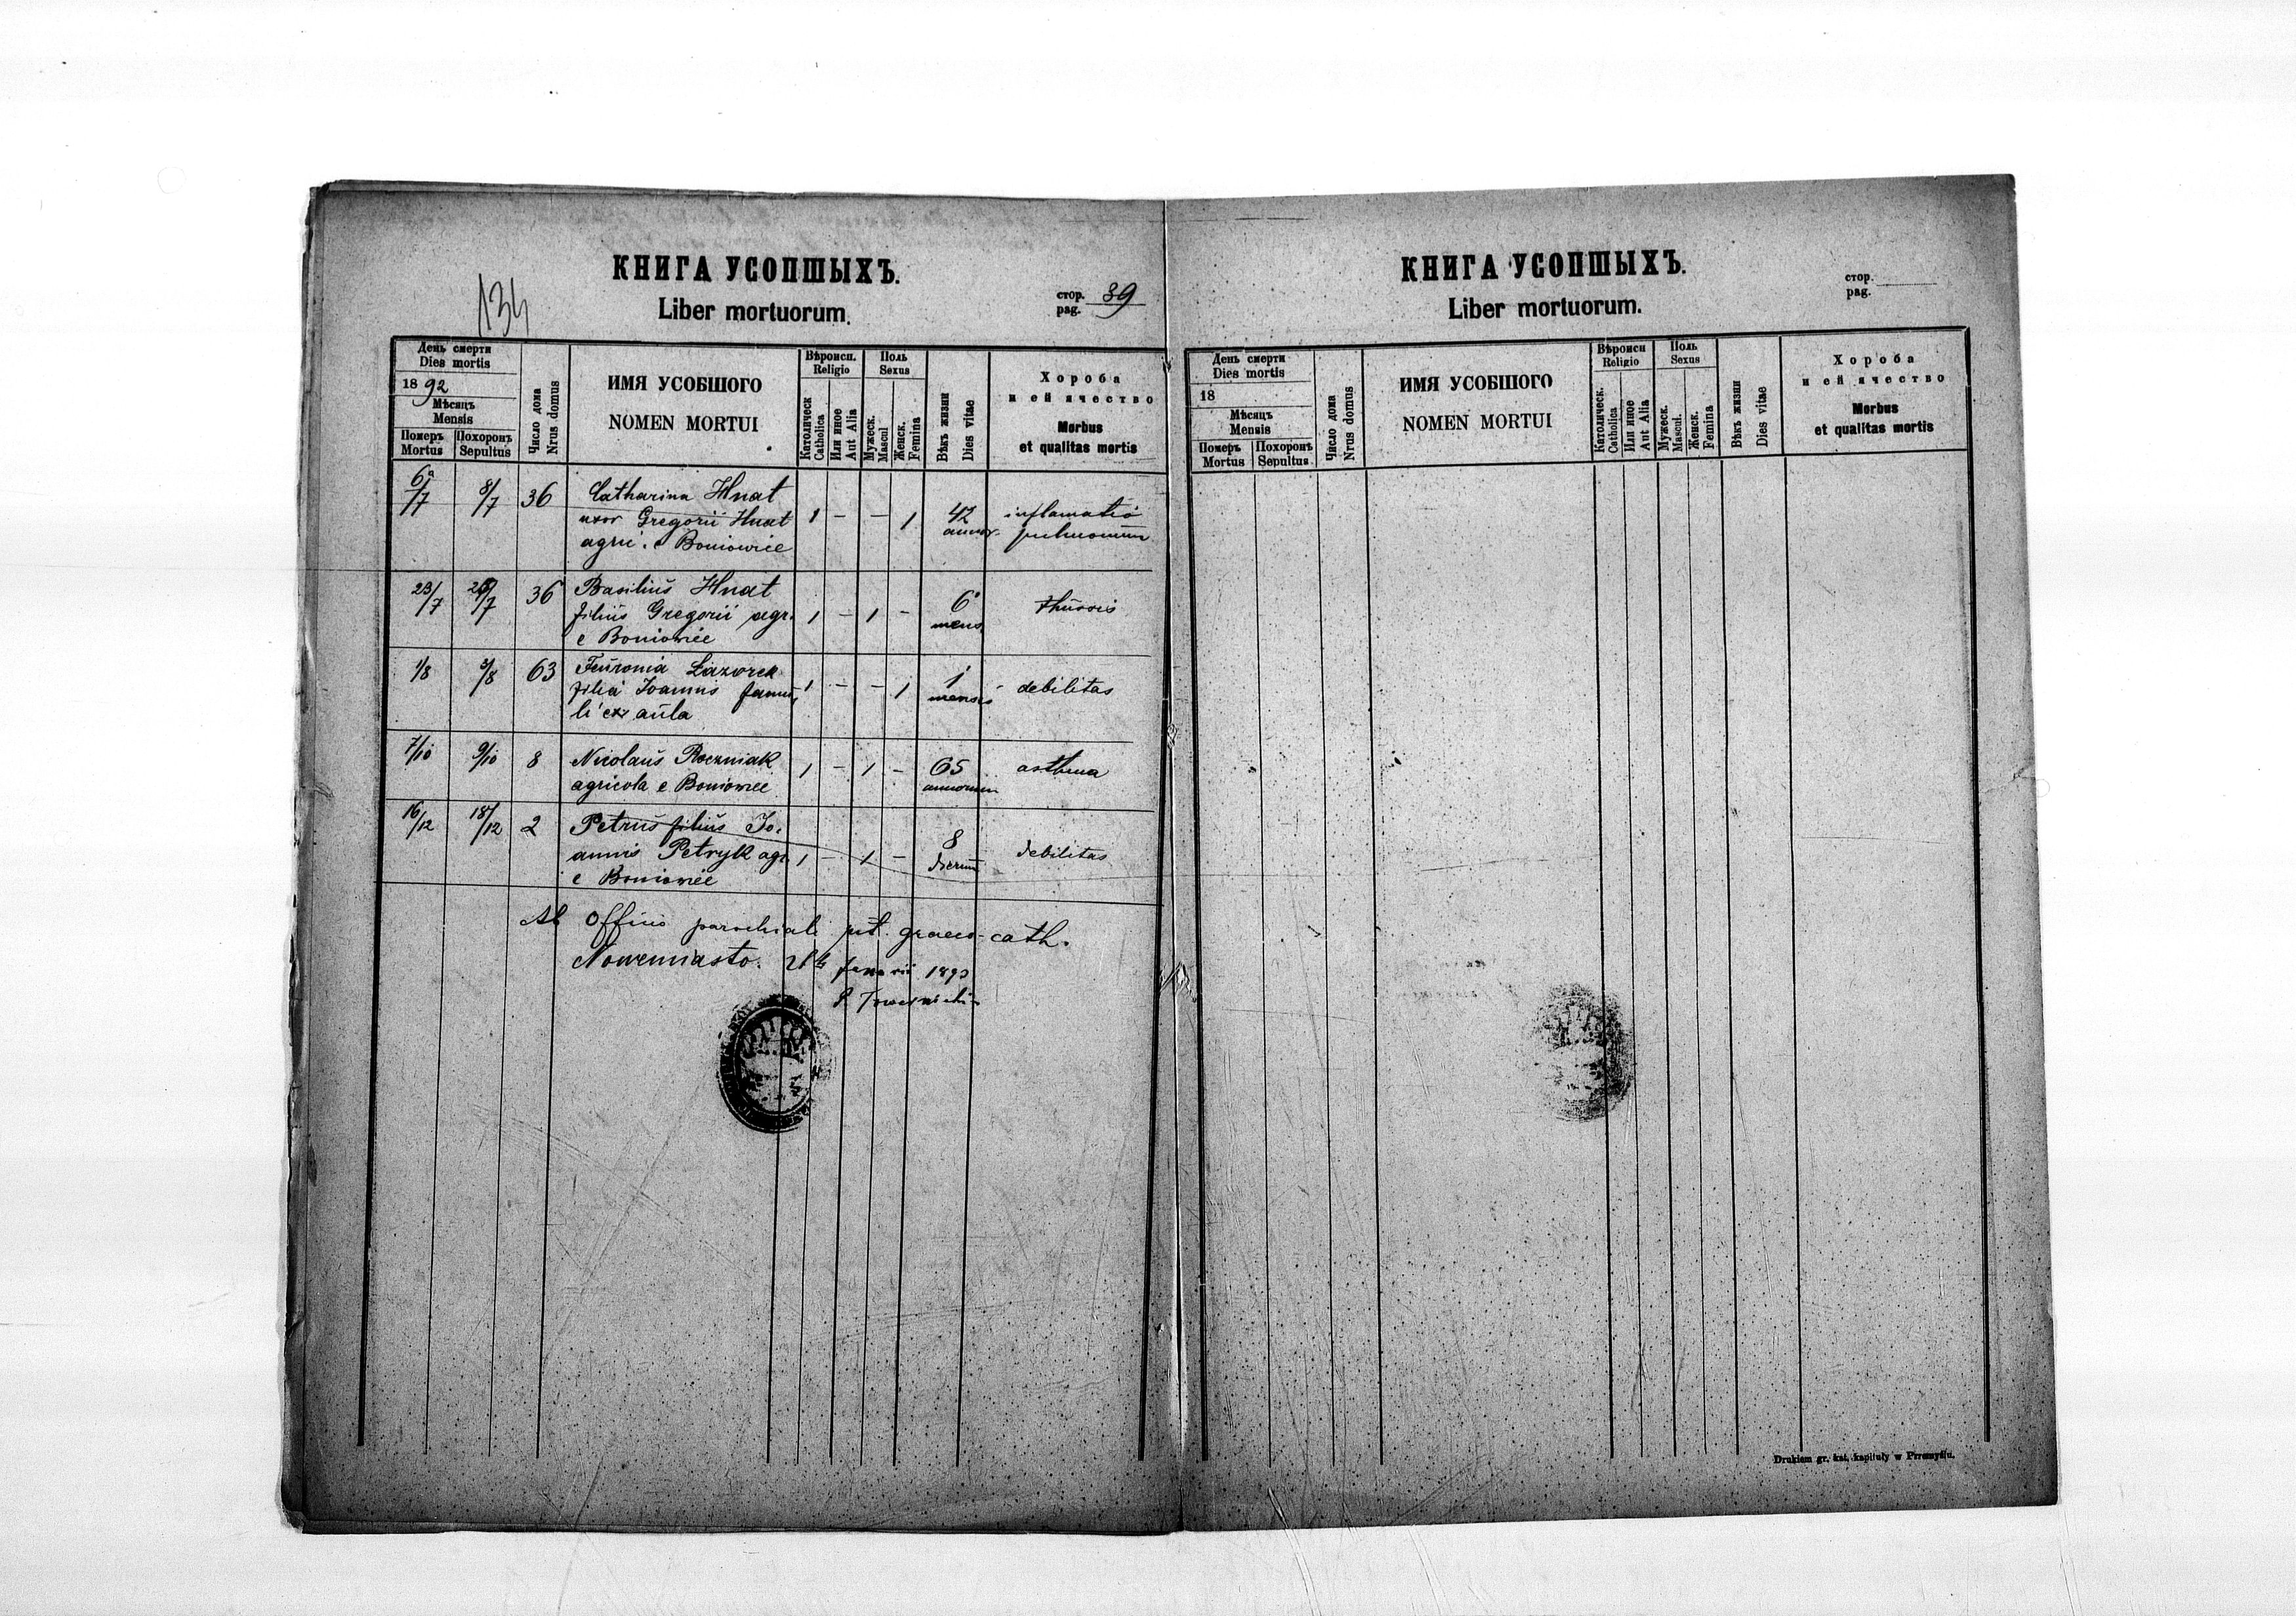 КНИГА УСОПШЫХЪ.
Liber mortuorum.
134
стор.
pag. 39
День смерти
Dies mortis
18 92
Мѣсяцъ
Mensis
Померъ Mortus
Похоронъ Sepultus
Число дома
Nrus domus
ИМЯ УСОБШОГО
NOMEN MORTUI
Вѣроисп.
Religio
Католическ
Catholica
Или иное
Aut Alia
Поль
Sexus
Мужеск.
Mascul
Женск.
Femina
Вѣкъ жизни
Dies vitae
Хороба
и ей ячество
Morbus
et qualitas mortis
6/7 8/7 36 Catharina Hnat
uxor Gregorii Hnat 1 – – 1 42 inflamatio
agri. e Boniowice annor. pulmonum
23/7 /7 36 Basilius Hnat
filius Gregorii agr. 1 – 1 – 6 thussis
e Boniowice mens.
1/8 3/8 63 Feuronia Łazorek
filia Joannis famu- 1 – – 1 1 debilitas
li ex aula mensis
7/10 9/10 8 Nicolaus Roczniak 1 – 1 – 65 asthma
agricola e Boniowice annorum
16/12 18/12 2 Petrus filius Jo.
annis Petryk agr. 1 – 1 – 8 debilitas
e Boniowice dierum
Ab Officio parochiali rit. graeco-cath.
Nowemiasto. Januarii 1893
КНИГА УСОПШЫХЪ.
Liber mortuorum.
стор.
pag.
День смерти
Dies mortis
18
Мѣсяцъ
Mensis
Померъ Mortus
Похоронъ Sepultus
Число дома
Nrus domus
ИМЯ УСОБШОГО
NOMEN MORTUI
Вѣроисп
Religio
Католическ.
Catholica
Или иное
Aut Alia
Поль
Sexus
Мужеск.
Mascul.
Женск.
Femina
Вѣкъ жизни
Dies vitae
Хороба
и ей ячество
Morbus
et qualitas mortis
Drukiem gr. kat. kapituły w Przemyślu.